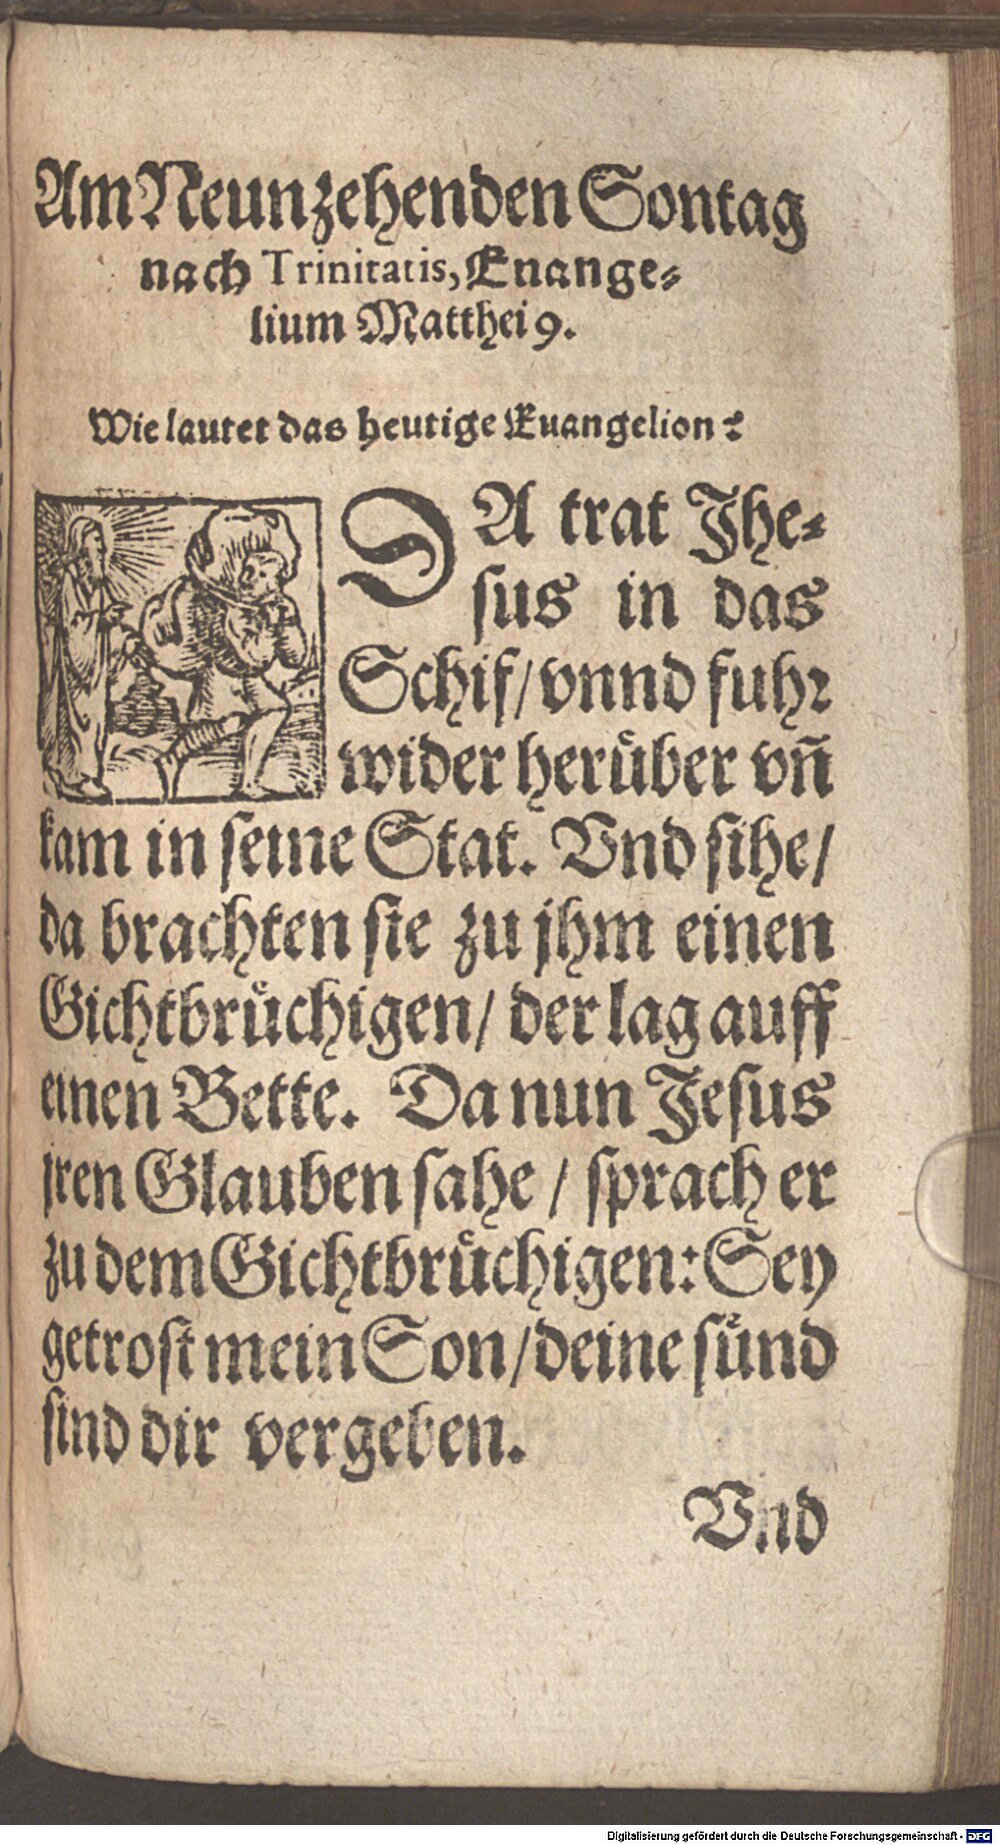 Am Neunzehenden Sontag
nach Trinitatis, Enange-
lium Matthei 9.
Wie lautet das heutige Euangelion?
DA trat Jhe-
sus in das
Schif/ vnnd fuhr
wider herüber vñ
kam in seine Stat. Vnd sihe/
da brachten sie zu jhm einen
Gichtbrüchigen/ der lag auff
einen Bette. Da nun Jesus
jren Glauben sahe / sprach er
zu dem Gichtbrüchigen: Sey
getrost mein Son/ deine sünd
sind dir vergeben.
Vnd
Digitalisierung gefördert durch die Deutsche Forschungsgemeinschaft - DFG